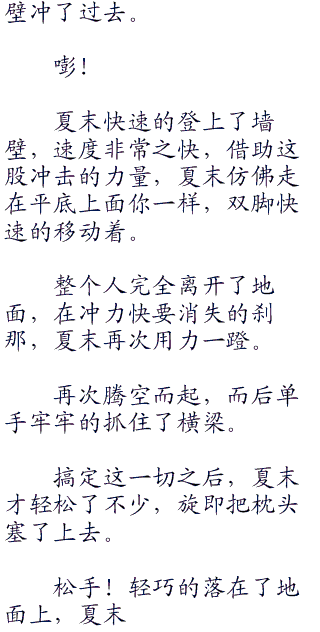 壁冲了过去。
嘭！
夏末快速的登上了墙
壁，速度非常之快，借助这
股冲击的力量，夏末仿佛走
在平底上面你一样，双脚快
速的移动着。
整个人完全离开了地
面，在冲力快要消失的刹
那，夏末再次用力一蹬。
再次腾空而起，而后单
手牢牢的抓住了横梁。
搞定这一切之后，夏末
才轻松了不少，旋即把枕头
塞了上去。
松手！轻巧的落在了地
面上，夏末